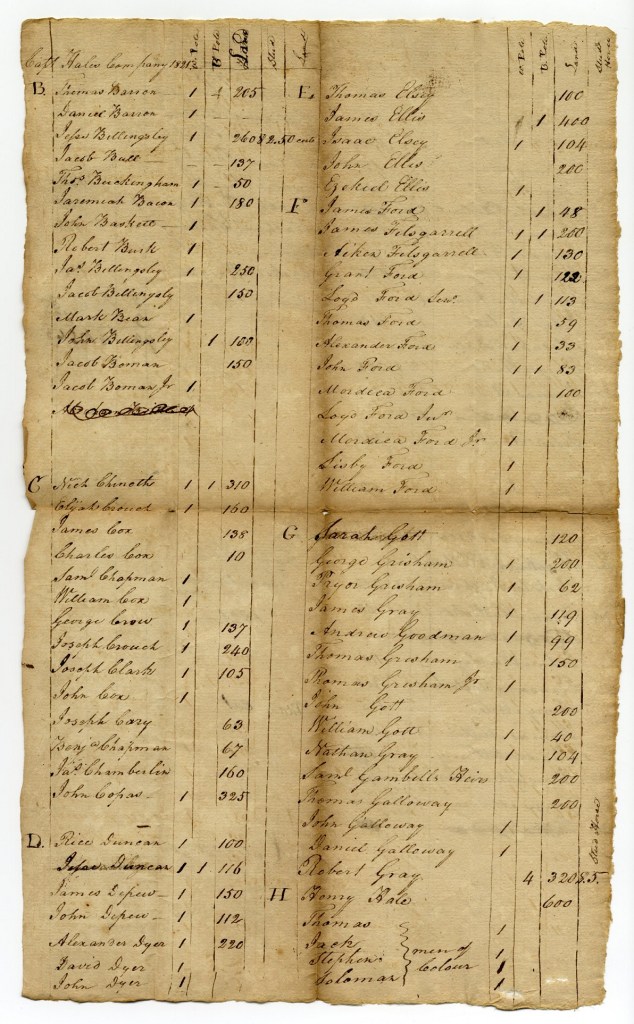 Capt Hales Company 1821 W Pole B Pole Land Stud Land
B. Thomas Barron 1 4 205
Daniel Barron 1
Jesse Billingsly 1 260 $2.50 cents
Jacob Butt 137
Thos. Buckingham 1 50
Jaremiah Bacon 1 180
John Baskett 1
Robert Burk 1
Jas. Billingsley 1 250
Jacob Billingsly 150
Mark Bean 1
John Billingsley 1 100
Jacob Boman 150
Jacob Boman Jr 1
C Nich Chinoth 1 1 310
Elijah Crouch 1 160
James Cox 138
Charles Cox 10
Saml Chapman 1
William Cox 1
George Crow 1 137
Joseph Crouch 1 240
Joseph Clark 1 105
John Cox 1
Joseph Cary 63
Benja Chapman 67
Jas. Chamberlin 160
John Copas 1 325
D. Rice Duncan 1 100
Jesse Duncan 1 1 116
James Depew 1 150
John Depew 1 112
Alexander Dyer 1 220
David Dyer 1
John Dyer 1
W Pole B Pole Land Stud Horse
E. Thomas Elsey 100
James Ellis 1 400
Isaac Elsey 1 104
John Ellis 200
Ezekiel Ellis 1
F James Ford 1 48
James Fitsgarrell 1 1 200
Aiken Fitsgarrell 1 130
Grant Ford 1 122
Loyd Ford Senr. 1 113
Thomas Ford 1 59
Alexander Ford 1 33
John Ford 1 1 83
Mordica Ford 100
Loyd Ford Junr 1
Mordica Ford Jr 1
Ford 1
William Ford 1
G Sarah Gott 120
George Grisham 1 200
Pryor Grisham 1 62
James Gray 1 119
Andrew Goodman 1 99
Thomas Grisham 1 150
Thomas Grisham Jr 1
John Gott 200
William Gott 1 40
Nathan Gray 1 104
Saml Gambells Heirs 200
Thomas Galloway 200
John Galloway 1
Daniel Galloway 1 Stud Horse
Robert Gray 4 320 $5.
H Henry Hale 600
Thomas 1
Jack men of 1
Stephen Colour 1
Soloman 1